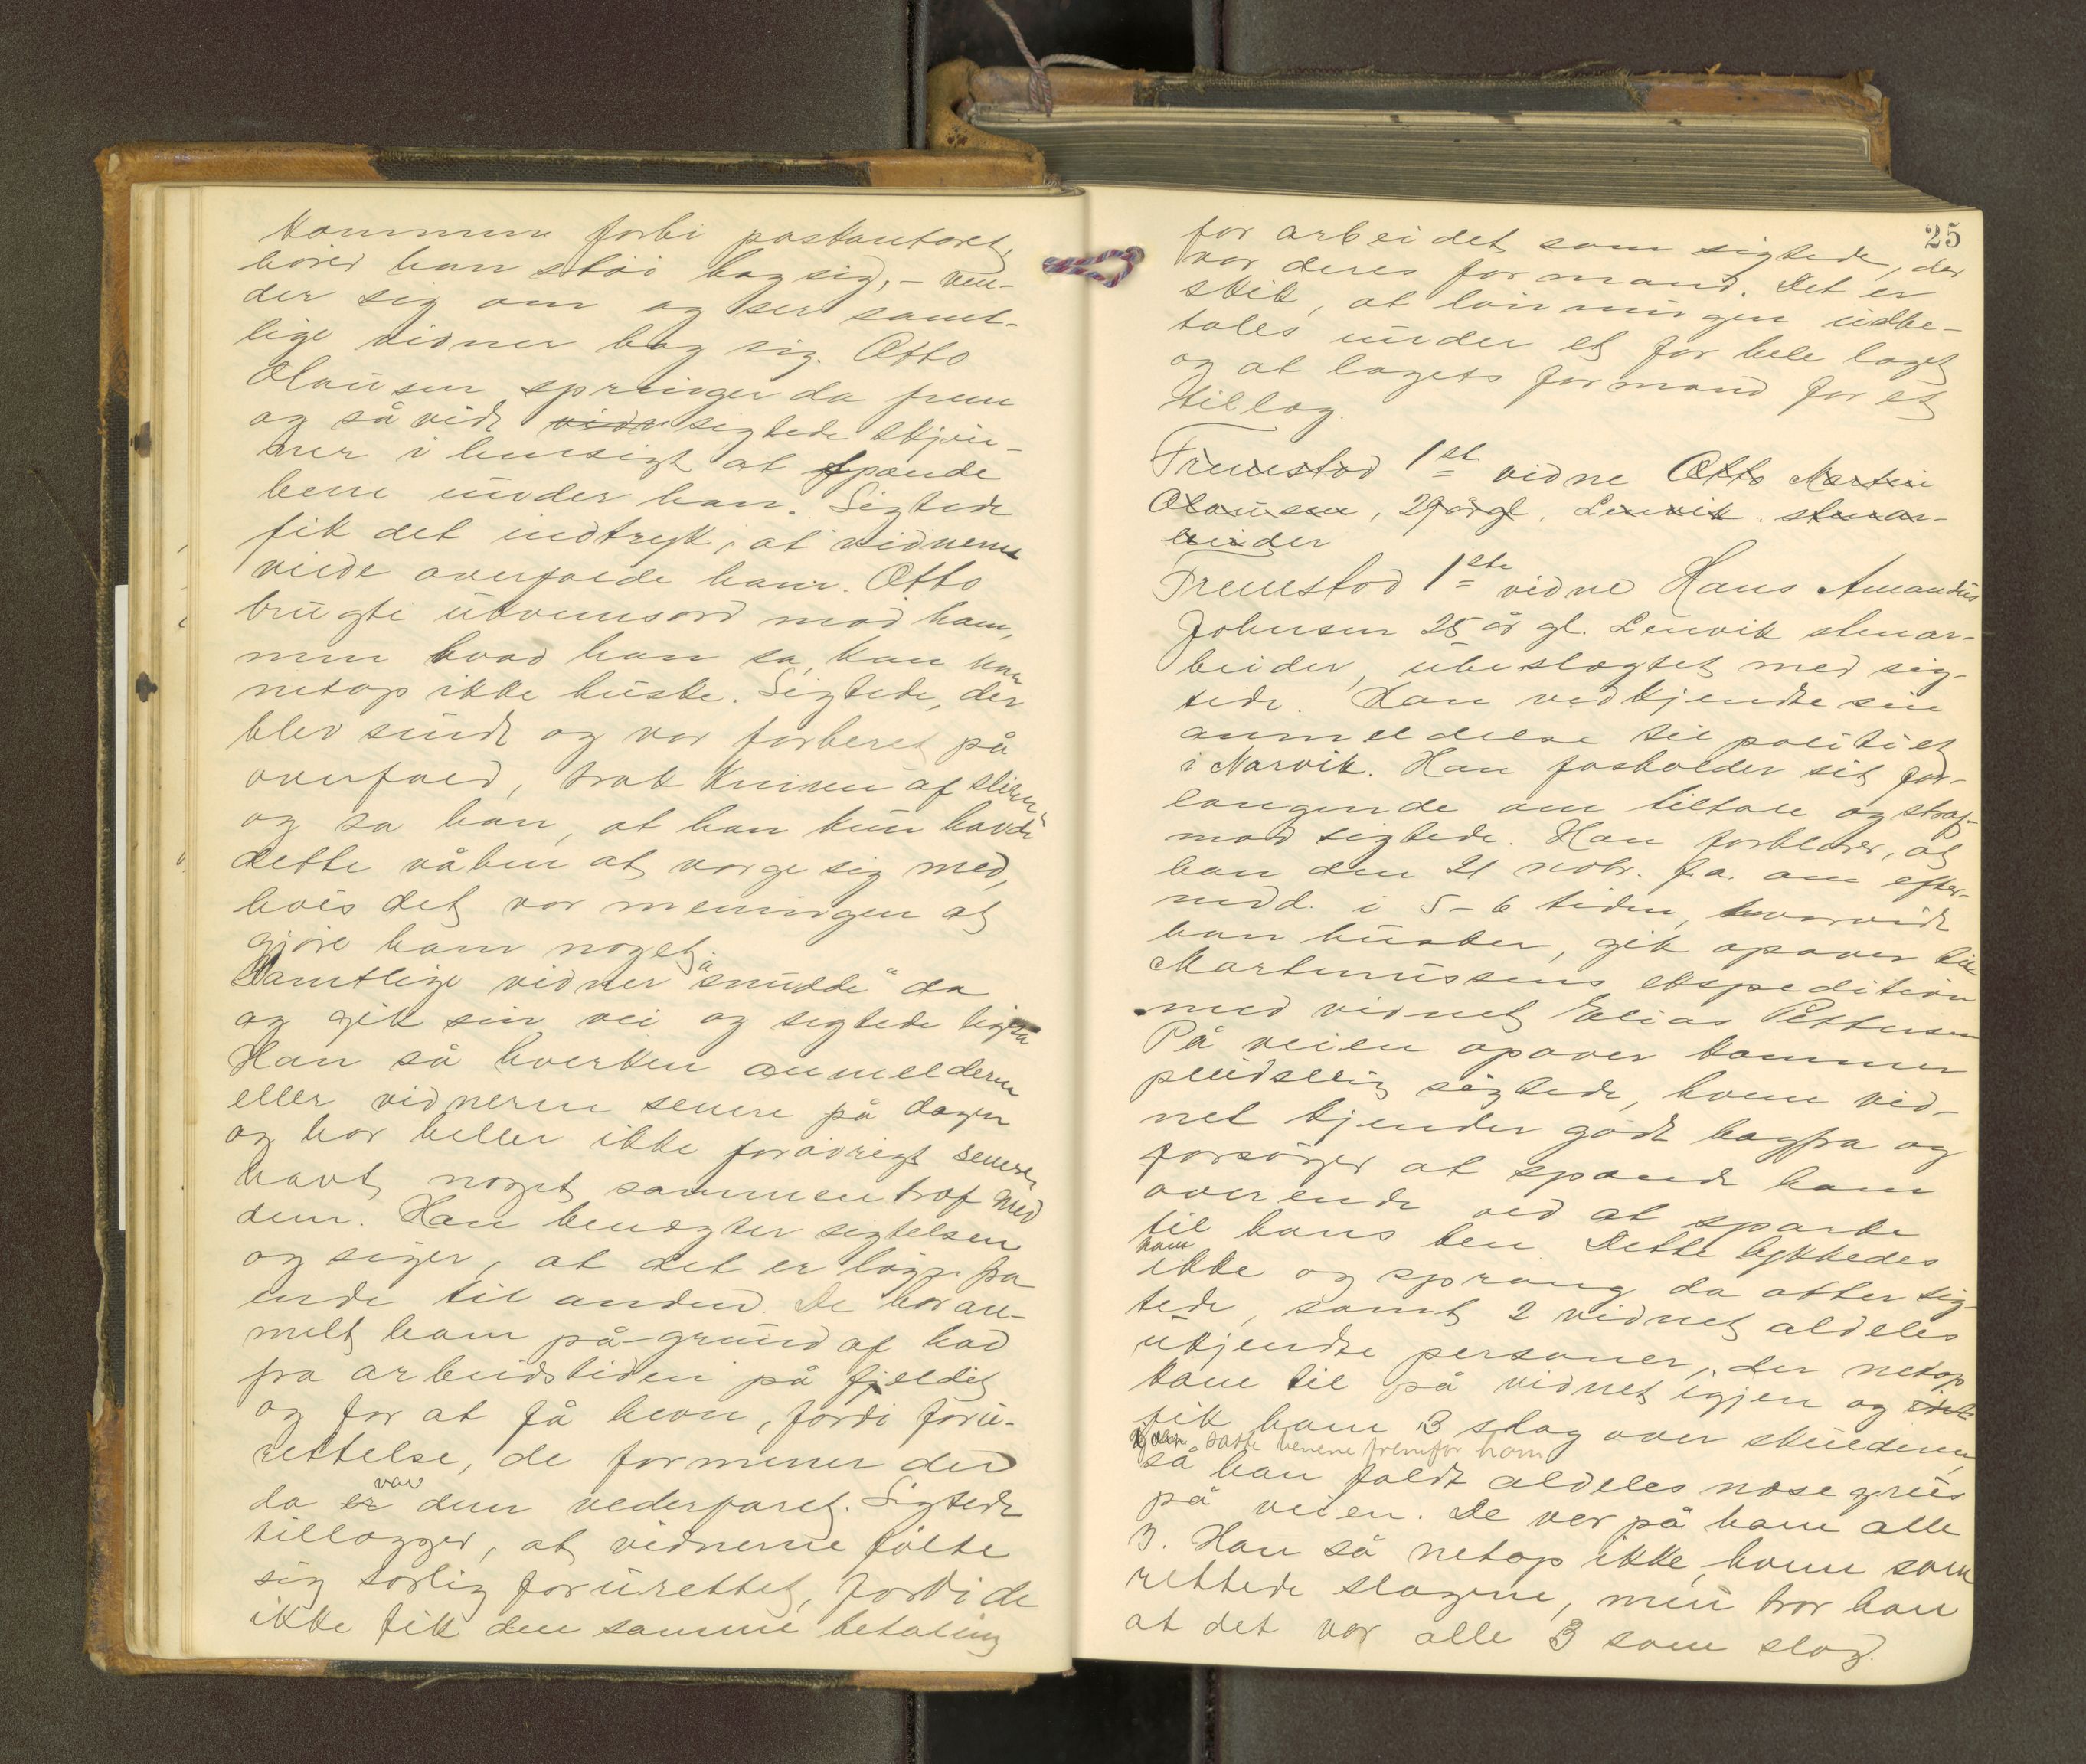 kommen forbi postkontoret,
hører han støi bag sig, - ven-
der sig om og ser samt-
lige vidner bag sig. Otto
Olausen springer da frem
og så vidt vidn sigtede skjøn-
ner i hensigt at spænde
bene under han. Sigtede
fik det indtryk, at vidnerne
vilde overfalde ham. Otto
brugte ukvemsord mod ham,
men hvad han sa, kan han
netop ikke huske. Sigtede, der
blev sindt og var forberet på
overfald, trak kniven af sliren
og sa han, at han kun havde
dette våben at værge sig med,
hvis det var meningen at
gjøre ham noget.
Samtlige vidner "snudde" da
og gik sin vei og sigtede ligeså
Han så hverken anmelderen
eller vidnerne senere på dagen
og har heller ikke forøvrigt senere
havt noget sammentræf med
dem. Han benægter sigtelsen
og siger, at det er løgn fra
ende til anden. De har an-
melt ham på grund af had
fra arbeidstiden på fjeldet
og for at få hevn, fordi foru-
rettelse, de formener der
da er var dem vederfaret. Sigtede
tillægger, at vidnerne følte
sig særlig forurettet, fordi de
ikke fik den samme betaling
25
for arbeidet som sigtede, der
var deres formand. Det er
skik, at lønningen udbe-
tales under et for hele laget
og at lagets formand får et
tillæg.
Fremstod 1ste vidne Otto Martin
Olausen, 29 år gl. Lenvik stenar-
beider
Fremstod 1ste vidne Hans Amandus
Johnsen 25 år gl. Lenvik stenar-
beider, ubeslægtet med sig-
tede. Han vedkjendte sin
anmeldelse til politiet
i Narvik. Han fastholder sit for-
langende om tiltale og straf
mod sigtede. Han forklarer, at
han den 21 nobr. f.a. om efter-
midd. i 5-6 tiden, hvorvidt
han husker, gik opover til
Martinussens ekspedition
med vidnet Elias Pettersen
På veien opover kommer
pludselig sigtede, hvem vid-
net kjender godt bagfra og
forsøger at spænde ham
overende ved at sparke
til hans ben. Dette lykkedes
ham
ikke og sprang da atter sig-
tede, samt 2 vidnet aldeles
ukjendte personer, der netop
kom til på vidnet igjen og
fik ham 3 slag over skulderen,
satte benene fremfor ham
så han faldt aldeles næsegrus
på veien. De var på ham alle
3. Han så netop ikke, hvem som
rettede slagene, men tror han
at det var alle 3 som slog.